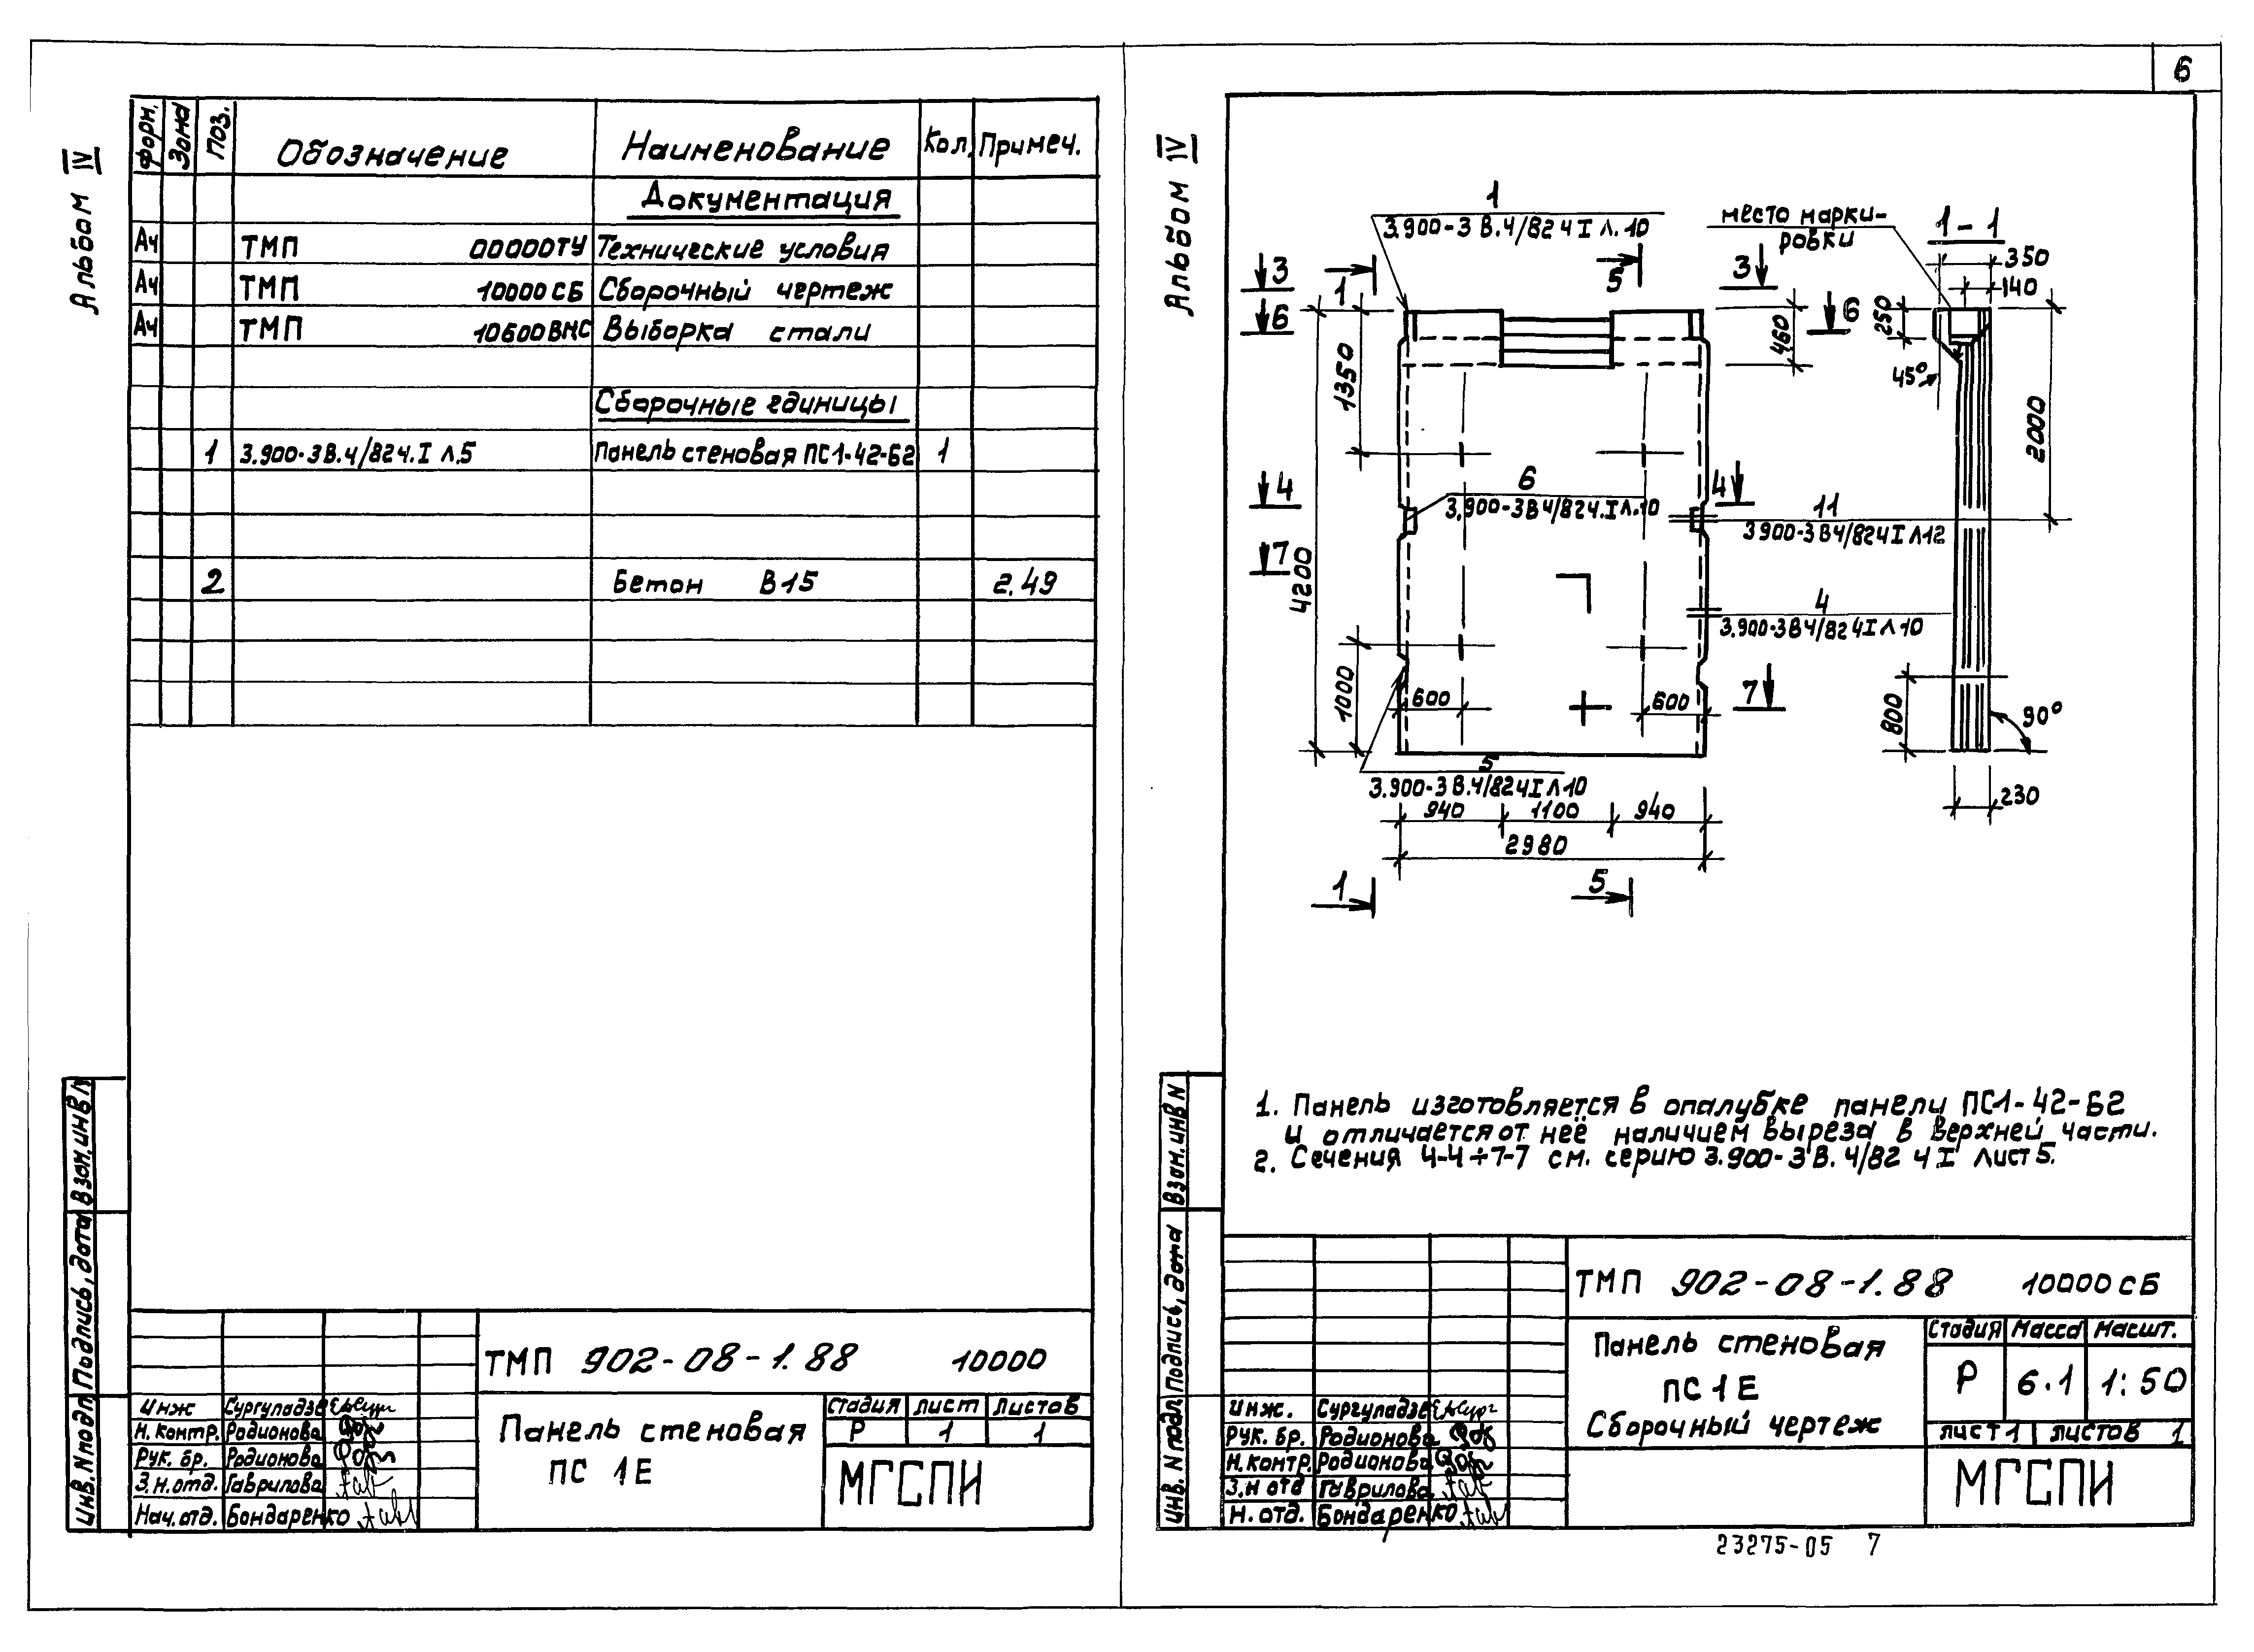 6
Альбом IV
Форм. Зона Поз. Обозначение Наименование Кол. Примеч.
Документация
А4 ТМП 00000ТУ Технические условия
А4 ТМП 10000СБ Сборочный чертеж
А4 ТМП 10600ВМС Выборка стали
Сборочные единицы
1 3.900-3В.4/82 ч.I Л.5 Панель стеновая ПС1-42-Б2 1
2 Бетон В15 2.49
Взам. инв N
Подпись, дата
Инв. N подл
ТМП 902-08-1.88 10000
Панель стеновая
ПС 1Е
Стадия Лист Листов
Р 1 1
МГСПИ
Инж Сургуладзе
Н. контр. Родионова
Рук. бр. Родионова
З.н.отд. Гаврилова
Нач.отд. Бондаренко
Альбом IV
1
3.900-3 В.4/82 ч I Л.10
место марки-
ровки
1-1
350
140
3 1 5 3
6 6
250
45°
460
1350
2000
4 4
6
3.900-3В4/82ч.I Л.10
11
3.900-3В4/82ч I Л12
7
4200
4
3.900-3В4/82 ч I Л10
1000
600 600
7
800
90°
230
5
3.900-3 В.4/82 ч I Л10
940 1100 940
2980
1 5
1. Панель изготовляется в опалубке панели ПС1-42-Б2
и отличается от неё наличием выреза в верхней части.
2. Сечения 4-4÷7-7 см. серию 3.900-3 В. 4/82 ч.I лист 5.
Взам. инв N
Подпись, дата
Инв. N подл.
ТМП 902-08-1.88 10000 СБ
Панель стеновая
ПС 1 Е
Сборочный чертеж
Стадия Масса Масшт.
Р 6.1 1:50
лист 1 листов 1
МГСПИ
Инж. Сургуладзе
Рук. бр. Родионова
Н.контр. Родионова
З.н отд Гаврилова
Н. отд. Бондаренко
23275-05 7